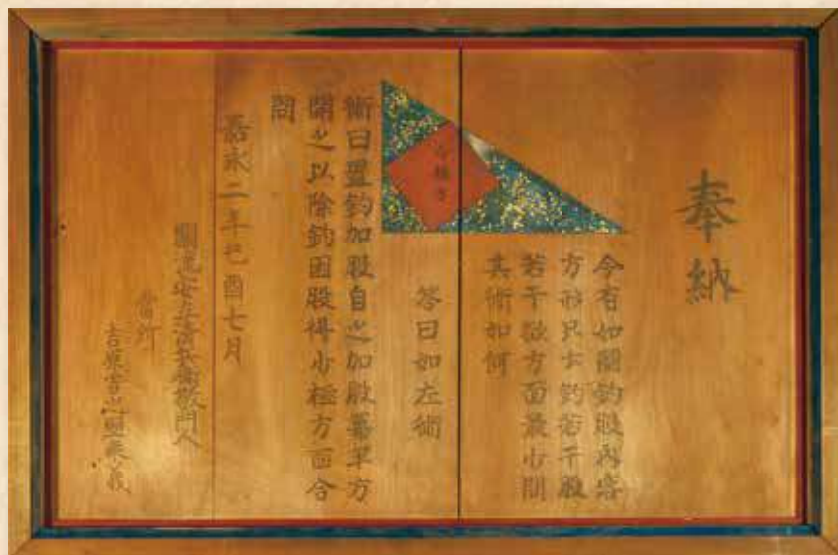 奉納
今有如圖鈎股內容
方形只云鈎若干股
若干欲方面最小問
其術如何
小極方
答曰如左術
術曰置鈎加股自之加股冪平方
開之以除鈎因股得小極方面合
問
嘉永二年己酉七月
關流 門人
吉原